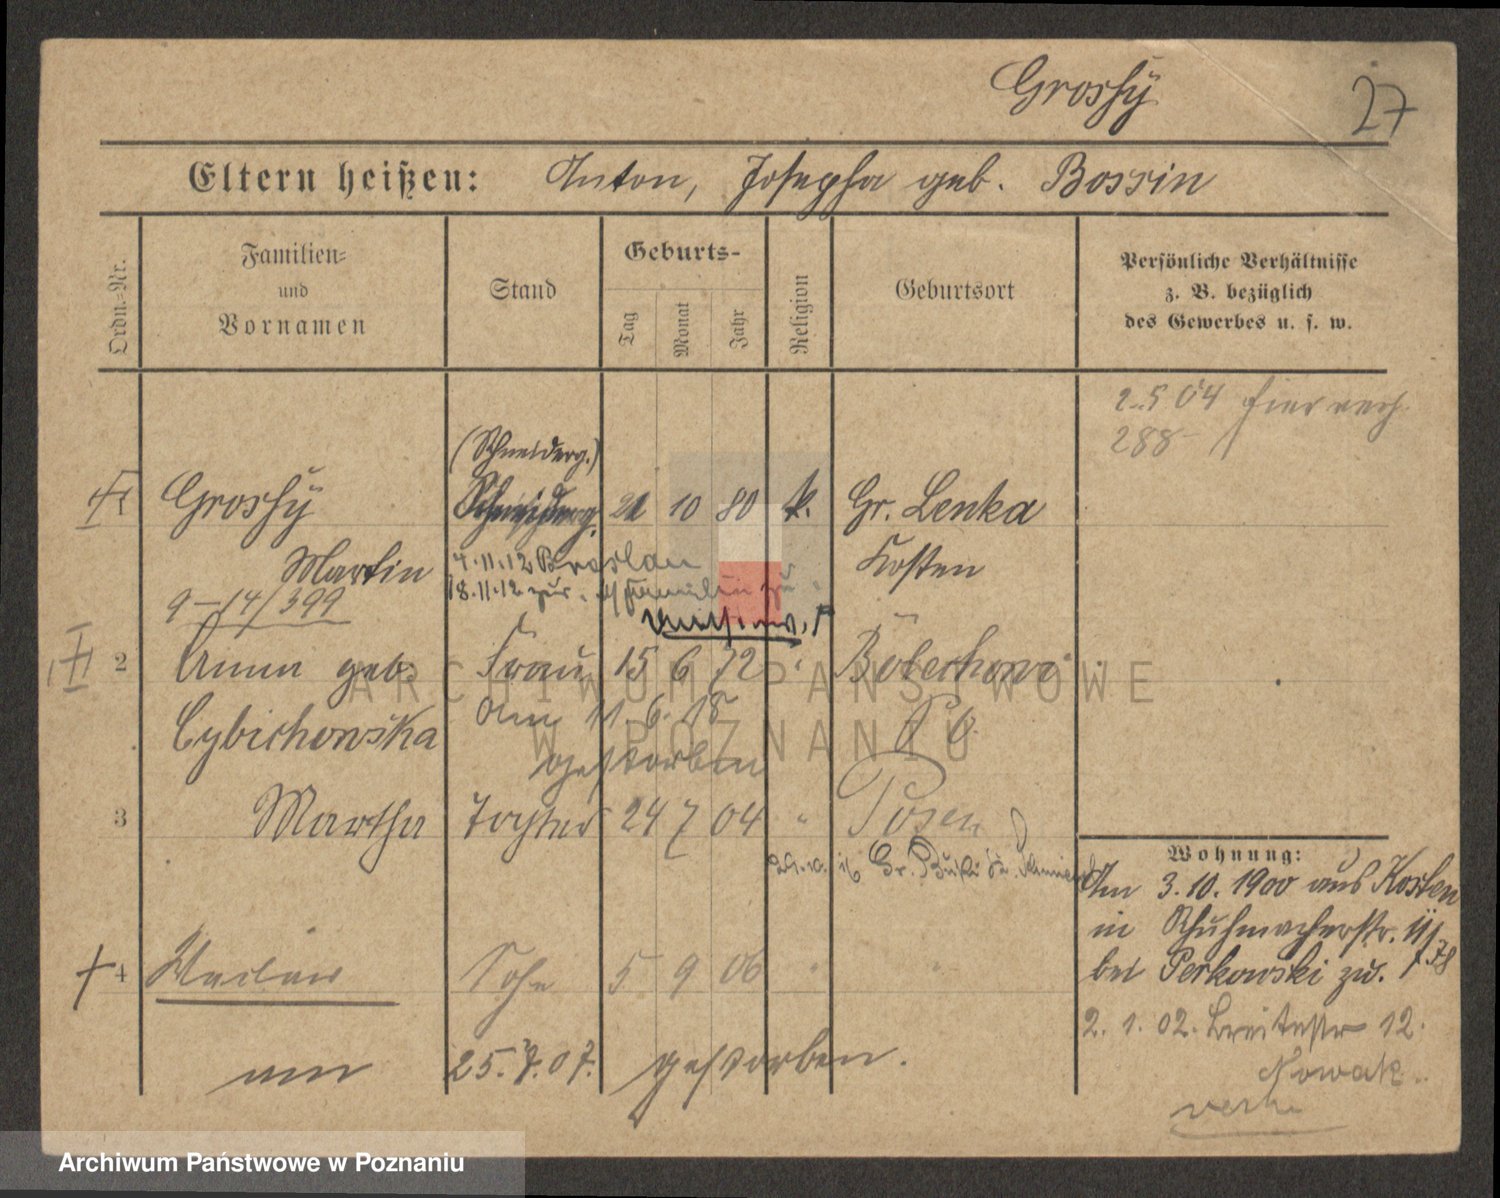 Grossy
27
Eltern heißen: Anton, Josepha geb. Bossin
Ordn.-Nr.
Familien-
und
Vornamen
Stand
Geburts-
Tag
Monat
Jahr
Religion
Geburtsort
Persönliche Verhältnisse
z. B. bezüglich
des Gewerbes u. s. w.
2.5.04 hier verh.
288
(Schneiderg.)
1 Grossy Schneiderg. 21 10 80 k. Gr. Lenka
Martin 4.11.12 Breslau Kosten
9-14/399 18.11.12 zur.
2 Anna geb. Frau 15 6 72 " Bolechowo
Cybichowska am 11.6.18 P. O.
gestorben
3 Martha Tochter 24 7 04 " Posen
Gr.
4 Waclaw Sohn 5 9 06 " "
am 25.7.07. gestorben.
Wohnung:
Am 3.10.1900 aus Kosten
in Schuhmacherstr. 11
bei Perkowski zu.
2.1.02. Breitestr 12.
Nowak
ARCHIWUM PAŃSTWOWE
W POZNANIU
Archiwum Państwowe w Poznaniu